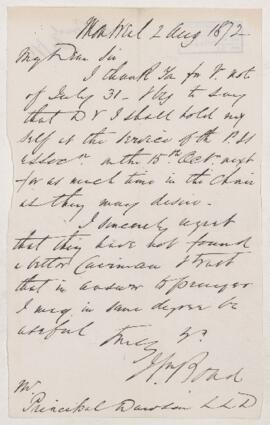 Montreal 2 Aug 1872
My Dear Sir
I thank You for Yr. note
of July 31 - & beg to say
that D V I shall hold my
self at the service of the P. S
assocn. on the 15th. Octr. next
for as much time in the Chair
as they may desire.
I sincerely regret
that they have not found
a better Cairman & trust
that in answer to prayer
I may in some degree be
useful
Truly Yr.
Principal Dawson L L D